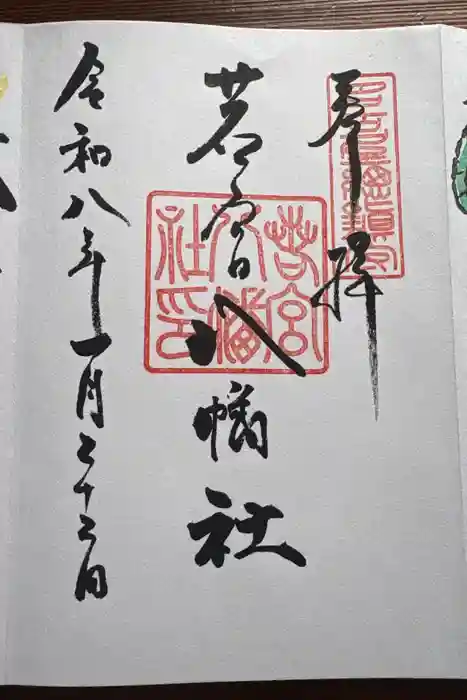 奉拝
若宮八幡社
令和八年一月二十二日
若宮
八幡
社印